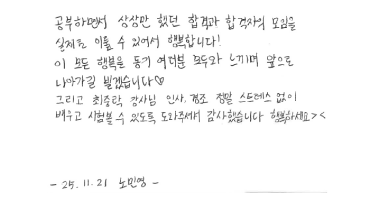 공부하면서 상상만 했던 합격과 합격자의 모임을
실제로 이룰 수 있어서 행복합니다!
이 모든 행복을 동기 여러분 모두와 느끼며 앞으로
나아가길 빌겠습니다♡
그리고 최중락 강사님 인사, 경조 정말 스트레스 없이
배우고 시험볼 수 있도록 도와주셔서 감사했습니다 행복하세요><
- 25. 11. 21 노민영 -